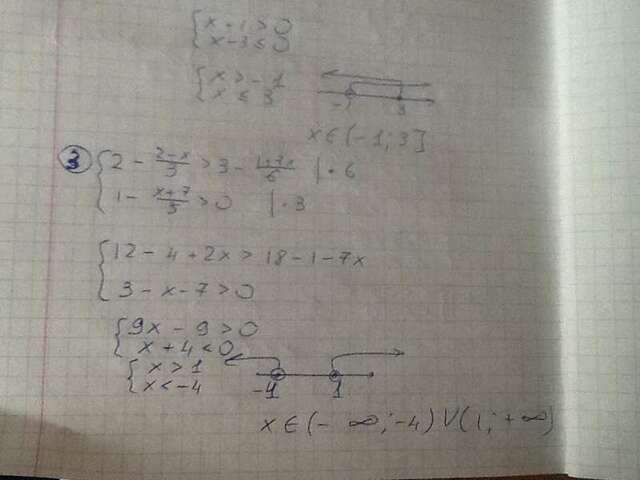 { x + 1 > 0
x - 3 ≤ 0
{ x > - 1
x ≤ 3
-1 3
x ∈ (- 1; 3]
3 { 2 - (2-x)/3 > 3 - (1+7x)/6 | · 6
1 - (x+7)/3 > 0 | · 3
{ 12 - 4 + 2x > 18 - 1 - 7x
3 - x - 7 > 0
{ 9x - 9 > 0
x + 4 < 0
{ x > 1
x < - 4
-4 1
x ∈ (- ∞; -4) ∪ (1; +∞)